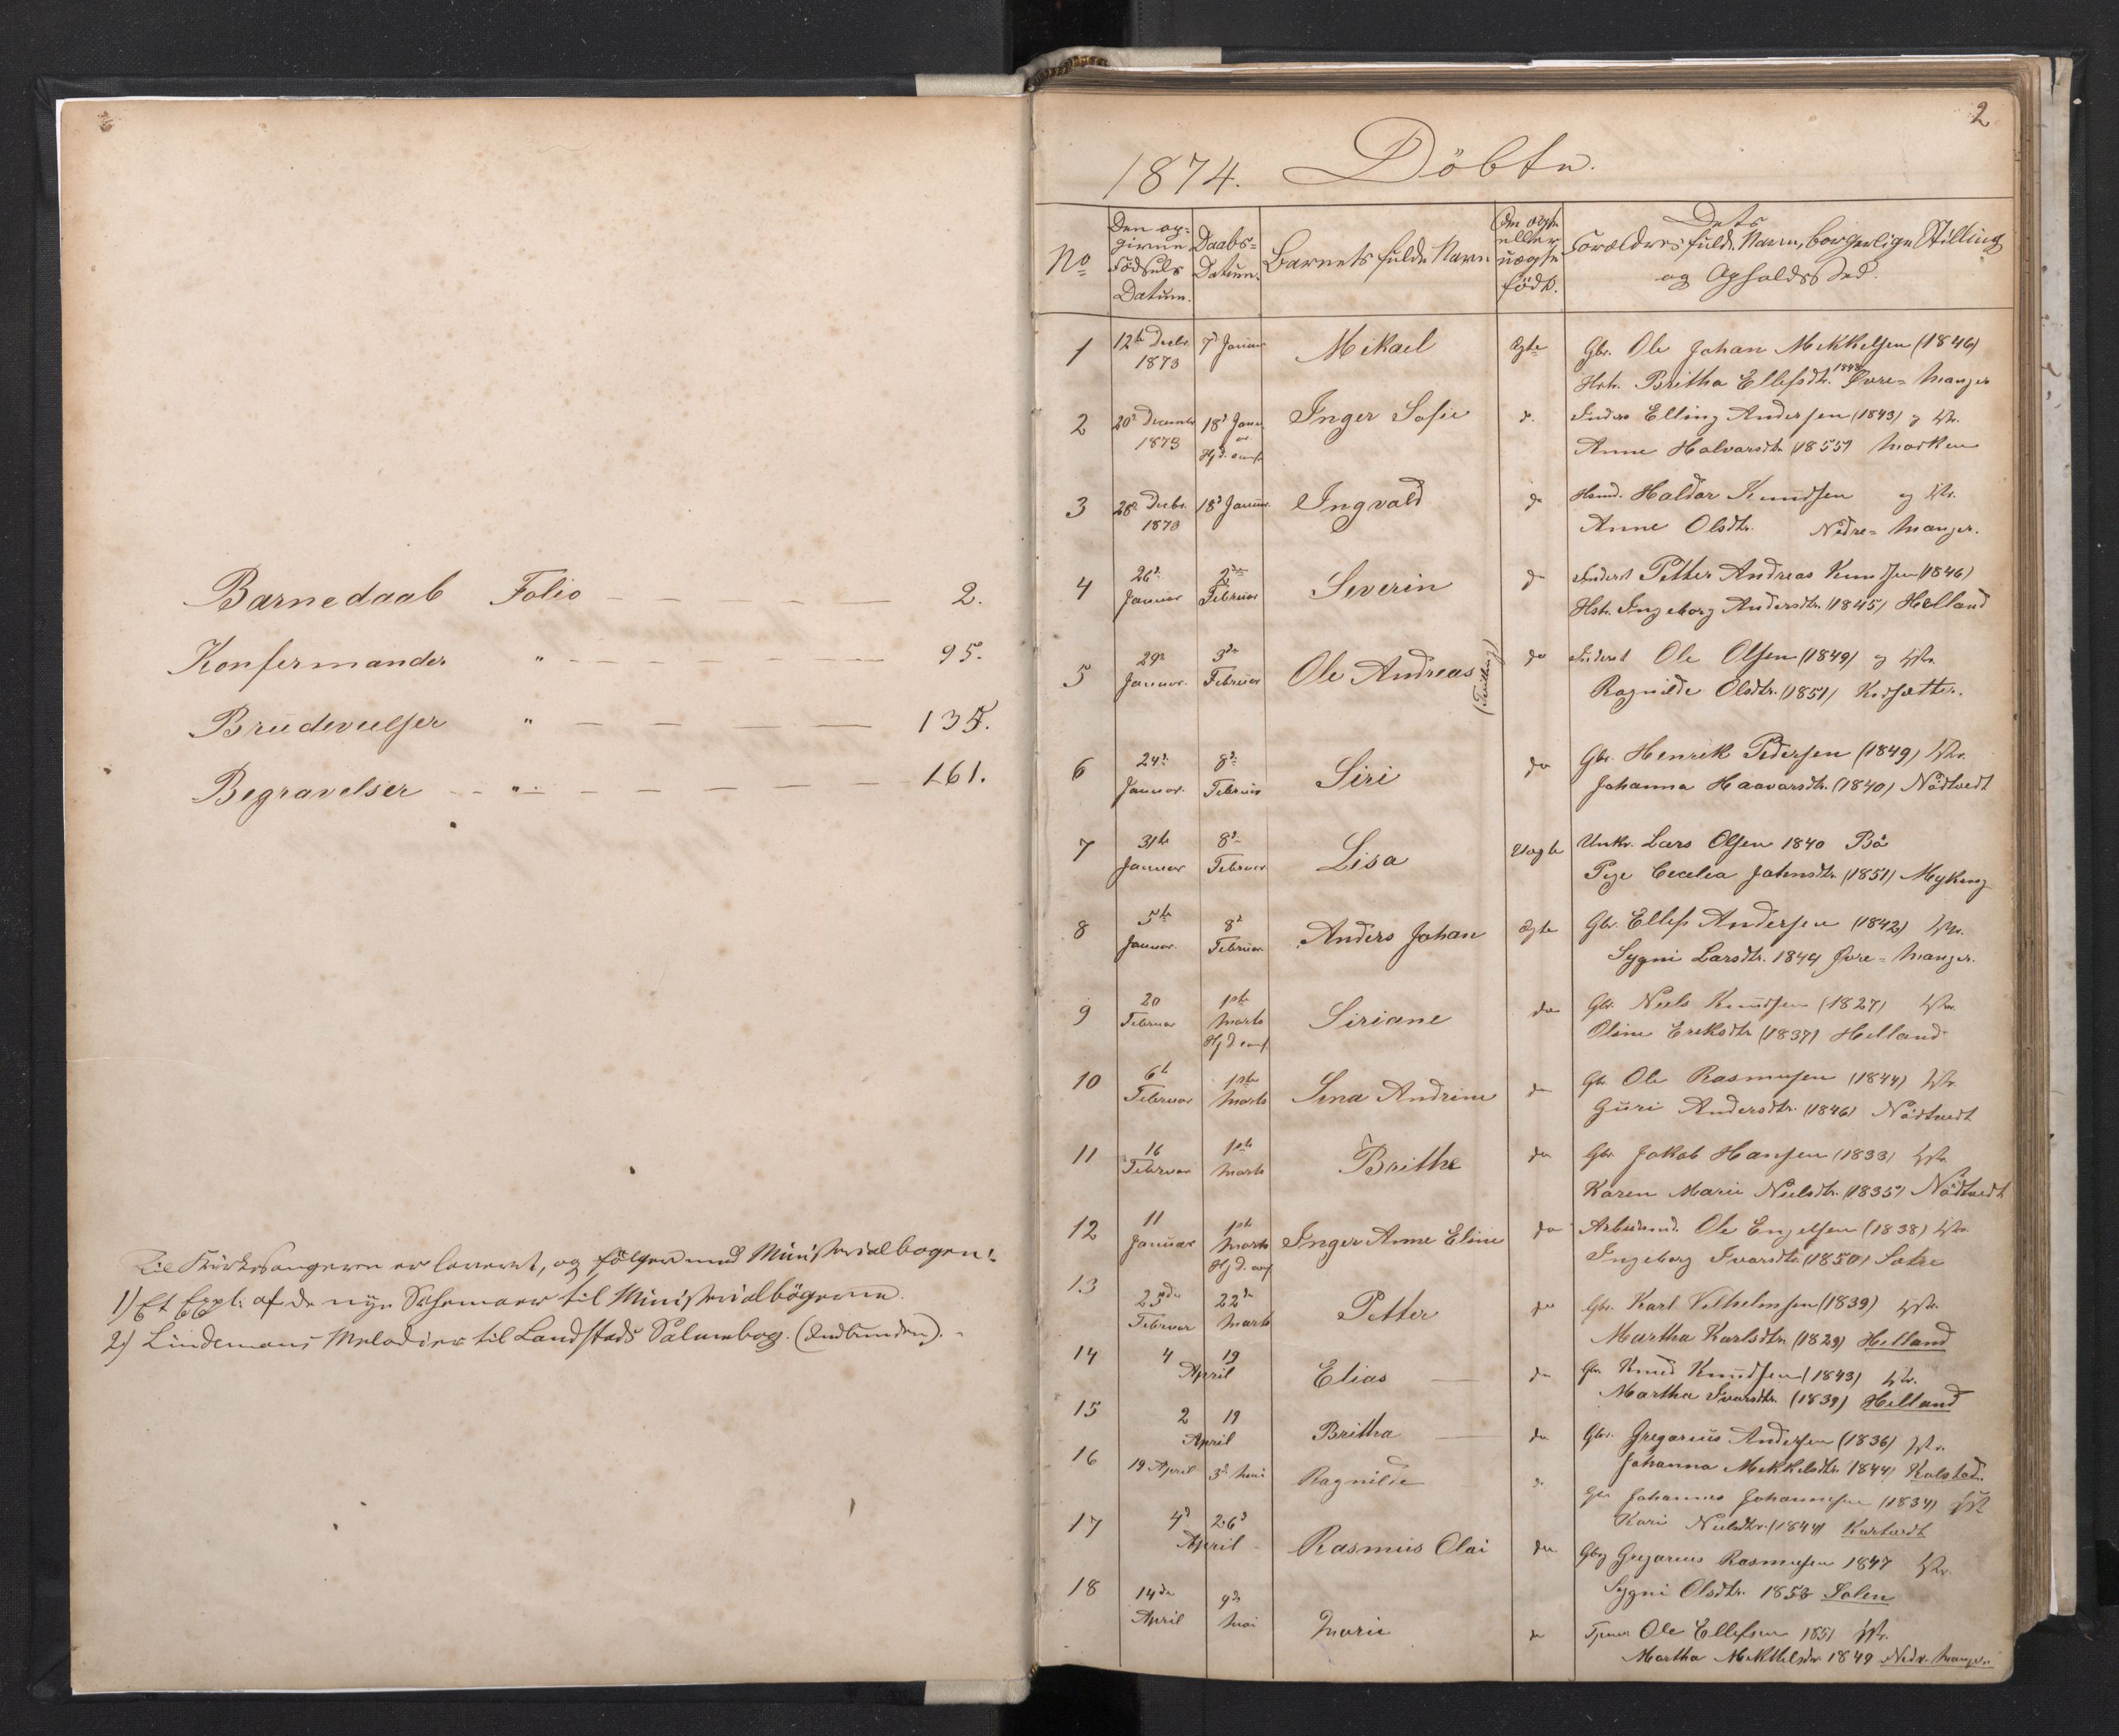 Barnedaab Folio — — — — — 2.
Konfermander " — — — — — — 95.
Brudevielser " — — — — — 135.
Begravelser " — — — — — — 161.
Til Kirkesangeren er leveret, og følger med Ministerialbogen:
1) Et Expl. af de nye Schemaer til Ministerialbøgerne.
2) Lindemans Melodier til Landstads Salmebog. (Indbunden).
2
1874. Döbte.
No
Den opgivne Födsels Datum.
Daabs-Datum.
Barnets fulde Navn
Om ægte eller uægte födt.
Dets Forældres fulde Navn, borgerlige Stilling og Opholdssted.
1 12te Decbr. 1873 7d Januar Mikael Ægte Gbr. Ole Johan Mikkelsen (1846)
Hstr. Britha Ellefsdtr. 1848 Øvre-Manger
2 20d December 1873 18d Januar Hjd. Inger Sofie d. Inders Elling Andersen (1843) og Hstr.
Anne Halvorsdtr. (1855) Marken
3 28d Decbr. 1873 18d Januar Ingvald do Hsmd. Haldor Knudsen og Hstr.
Anne Olsdtr. Nedre-Manger.
4 26d Januar 2den Februar Severin do Inderst Petter Andreas Knudsen (1846)
Hstr. Ingeborg Andersdtr. (1845) Helland
5 29d Januar 3die Februar Ole Andreas (Tvilling) do Inderst Ole Olsen (1849) og Hstr.
Ragnilde Olsdtr. (1851)
6 24d Januar. 8d Februar Siri do Gbr. Henrik Pedersen (1849) Hstr.
Johanna Haavarsdtr. (1840) Nödtvedt
7 31te Januar 8d Februar Lisa Uægte Unkr. Lars Olsen 1840 Bö
Pige Cecelia Johnsdtr. (1851) Myking
8 5te Januar. 8d Februar Anders Johan Ægte Gbr. Ellef Andersen (1842) Hstr.
Sygni Larsdtr. 1849 Øvre-Manger.
9 20 Februar 1ste Marts Hjd Siriane do Gbr. Niels Knudsen (1827) Hstr.
Oline Eriksdtr. (1837) Helland
10 6te Februar 1ste Marts Sina Andrine do Gbr. Ole Rasmusen (1844) Hstr.
Guri Andersdtr. (1846) Nödtvedt
11 16 Februar 1ste Marts Brithe do Gbr. Jakob Hansen (1833) Hstr.
Karen Marie Nielsdtr. (1835) Nödtvedt
12 11 Januar 1ste Marts Hjd. Inger Anne Eline do Arbeidsmd. Ole Engelsen (1838) Hstr.
Ingeborg Ivarsdtr. (1850) Sætre
13 23de Februar 22de Marts Petter do Gbr. Karl Vilhelmsen (1839) Hstr.
Martha Karlsdtr. (1829) Helland
14 4 April 19 Elias — do Gbr. Knud Knudsen (1843) Hstr.
Martha Ivarsdtr. (1839) Helland
15 2 April 19 Britha — do Gbr. Gregorius Andersen (1836) Hstr.
Johanna Mikkelsdtr. 1844 Kolstad.
16 19 April 3d Mai Ragnilde d. Gbr Johannes Johannesen (1834) Hst
Kari Nielsdtr. (1844) Kartvedt
17 4d April 26d Rasmus Olai do Gbr Gregorius Rasmusen 1847 Hstr.
Sygni Olsdtr. 1853 Solen
18 14de April 9de Mai Marie do Tjener Ole Ellefsen 1851 Hstr.
Martha Mikkelsdtr 1849 Nedr. Manger